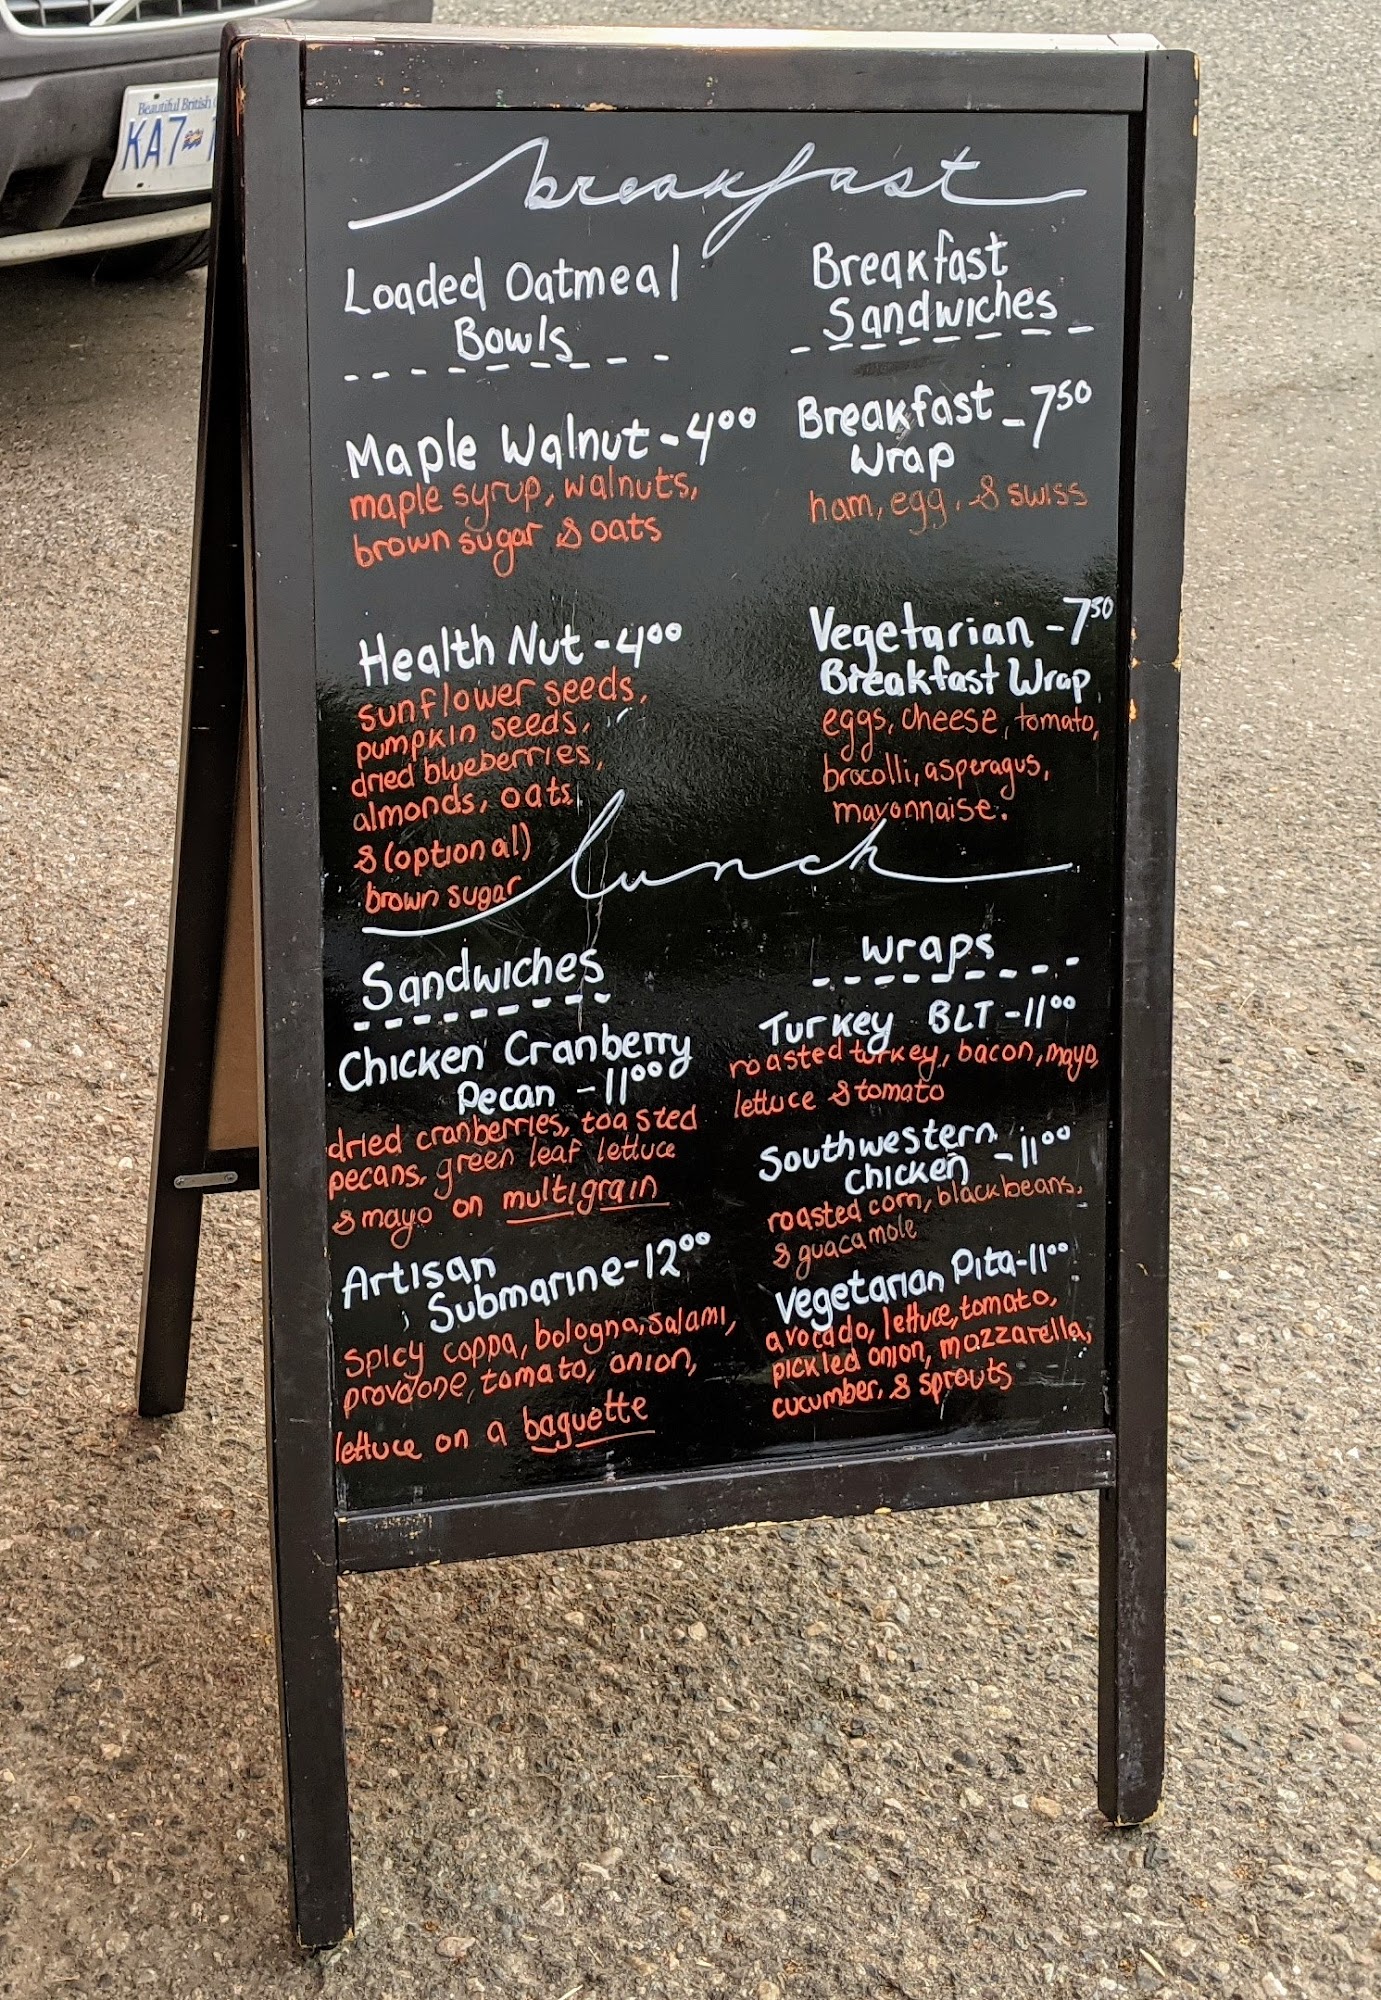 Beautiful British
KA7
breakfast
Loaded Oatmeal
Bowls
Maple Walnut - 4.00
maple syrup, walnuts,
brown sugar & oats
Health Nut - 4.00
sunflower seeds,
pumpkin seeds,
dried blueberries,
almonds, oats,
& (optional)
brown sugar
Breakfast
Sandwiches
Breakfast - 7.50
Wrap
ham, egg, & swiss
Vegetarian - 7.50
Breakfast Wrap
eggs, cheese, tomato,
brocolli, asperagus,
mayonnaise.
lunch
Sandwiches
Chicken Cranberry
Pecan - 11.00
dried cranberries, toasted
pecans, green leaf lettuce
& mayo on multigrain
Artisan
Submarine - 12.00
spicy coppa, bologna, salami,
provolone, tomato, onion,
lettuce on a baguette
wraps
Turkey BLT - 11.00
roasted turkey, bacon, mayo,
lettuce & tomato
Southwestern
Chicken - 11.00
roasted corn, black beans,
& guacamole
Vegetarian Pita - 11.00
avocado, lettuce, tomato,
pickled onion, mozzarella,
cucumber, & sprouts